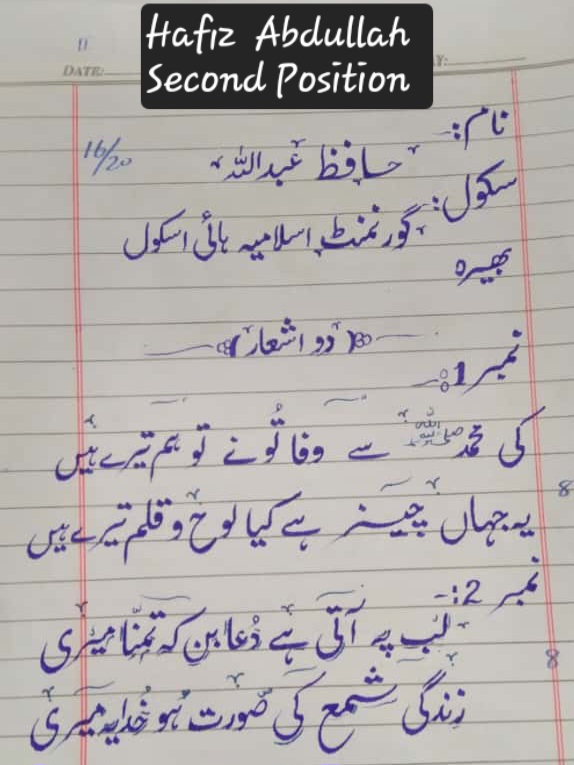 Hafiz Abdullah
Second Position
DATE:
16/20
نام:-
حافظ عبداللہ
سکول:
گورنمنٹ اسلامیہ ہائی اسکول
بھیرہ
(دو اشعار)
نمبر 1:-
کی محمد ﷺ سے وفا تُو نے تو ہم تیرے ہیں
یہ جہاں چیز ہے کیا لوح و قلم تیرے ہیں
8
نمبر 2:-
لب پہ آتی ہے دُعا بن کہ تمنّا میری
8
زندگی شمع کی صورت ہو خُدایہ میری